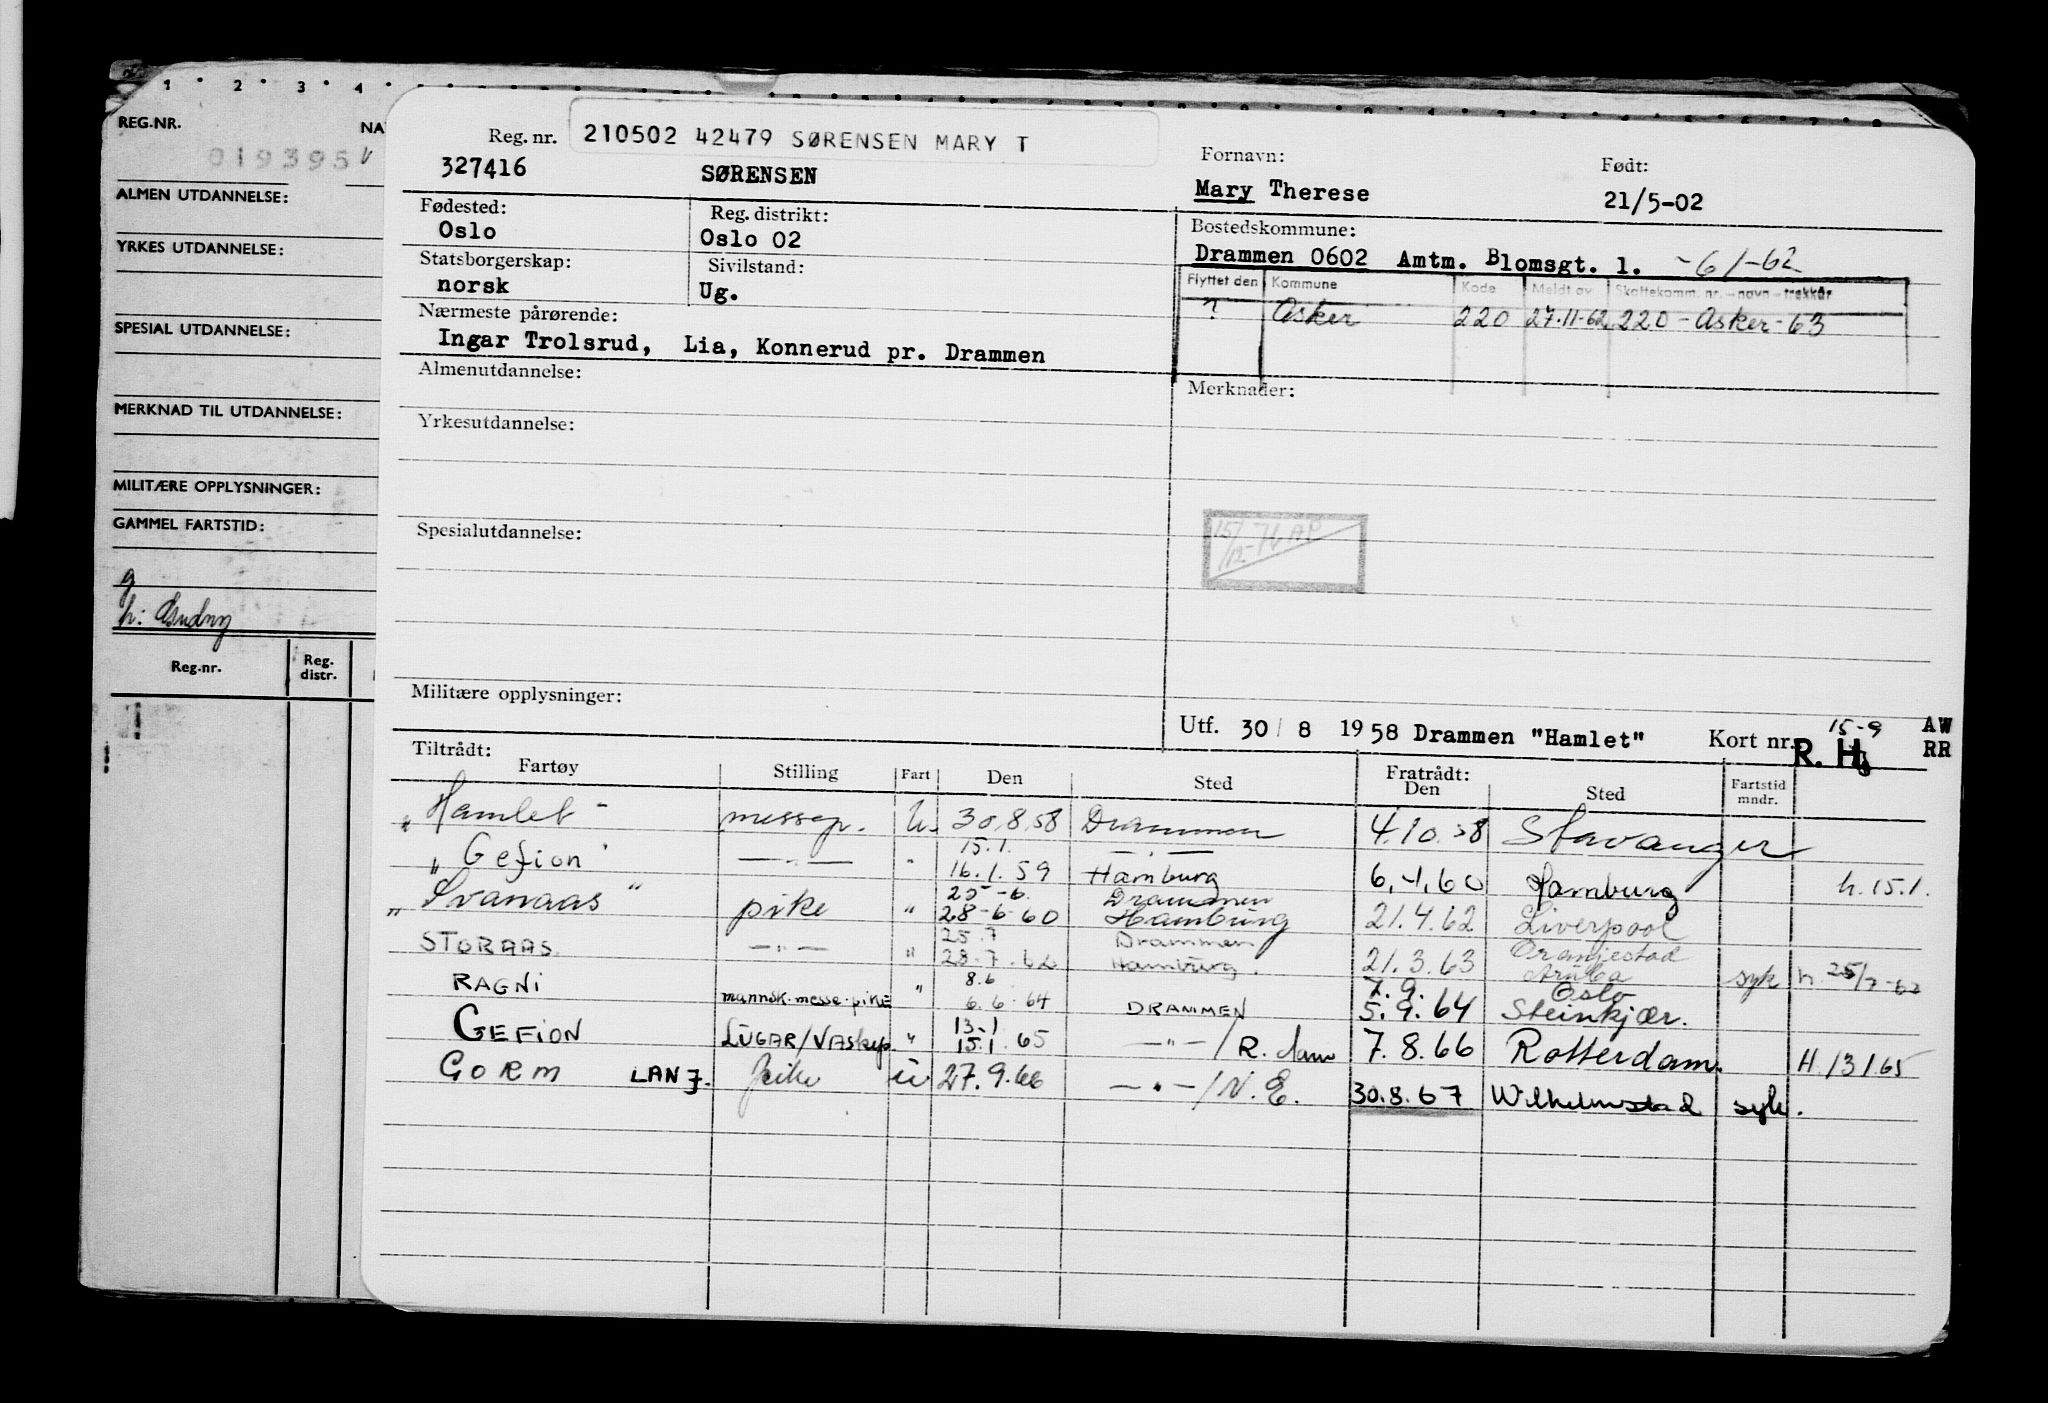 1 2 3 4
REG.NR. NA
019395
ALMEN UTDANNELSE:
YRKES UTDANNELSE:
SPESIAL UTDANNELSE:
MERKNAD TIL UTDANNELSE:
MILITÆRE OPPLYSNINGER:
GAMMEL FARTSTID:
g
h:
Reg.nr. Reg. distr.
Reg. nr. 210502 42479 SØRENSEN MARY T
327416 SØRENSEN
Fornavn: Født:
Mary Therese 21/5-02
Fødested: Reg. distrikt: Bostedskommune:
Oslo Oslo 02 Drammen 0602 Amtm. Blomsgt. 1. -61-62
Statsborgerskap: Sivilstand:
norsk Ug.
Flyttet den Kommune Kode Meldt av Skattekomm. nr. - navn - trekkår
? Asker 220 27.11-62 220 - Asker - 63
Nærmeste pårørende:
Ingar Trolsrud, Lia, Konnerud pr. Drammen
Almenutdannelse:
Merknader:
Yrkesutdannelse:
Spesialutdannelse:
15/12-76 AP
Militære opplysninger:
Utf. 30/ 8 1958 Drammen "Hamlet" Kort nr. 15-9 AW
R. H RR
Tiltrådt: Fratrådt:
Fartøy Stilling Fart Den Sted Den Sted Fartstid mndr.
„Hamlet" messep. u. 30.8.58 Drammen 4.10.58 Stavanger
15.1. — · —
„Gefion" — " — " 16.1.59 Hamburg 6.1.60 Hamburg h. 15.1.
25-6. Drammen
„Svanaas" pike " 28-6-60 Hamburg 21.4.62 Liverpool
25.7 Drammen Oranjestad
STORAAS. — " — " 28.7.62 Hamburg. 21.3.63 Aruba syk h. 25/7-62
8.6 7.9. Oslo
RAGNI mannsk.messe-pike " 6.6.64 DRAMMEN 5.9.64 Steinkjær.
13-1
GEFION LUGAR/VASKEP. " 15.1.65 — " — / R.dam 7.8.66 Rotterdam. H. 13/1.65
GORM LANJ. Pike u 27.9.66 — " — / N.E. 30.8.67 Wilhelmstad syk.